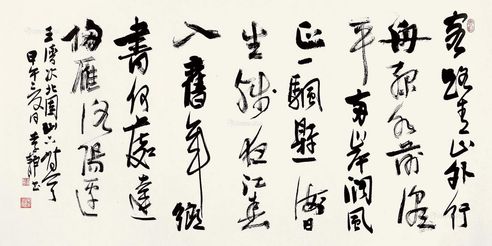 客路青山外行
舟綠水前潮
平兩岸闊風
正一颿縣海日
生殘夜江春
入舊年鄉
書何處達
歸雁洛陽邊
王灣次北固山下詩
甲午夏月